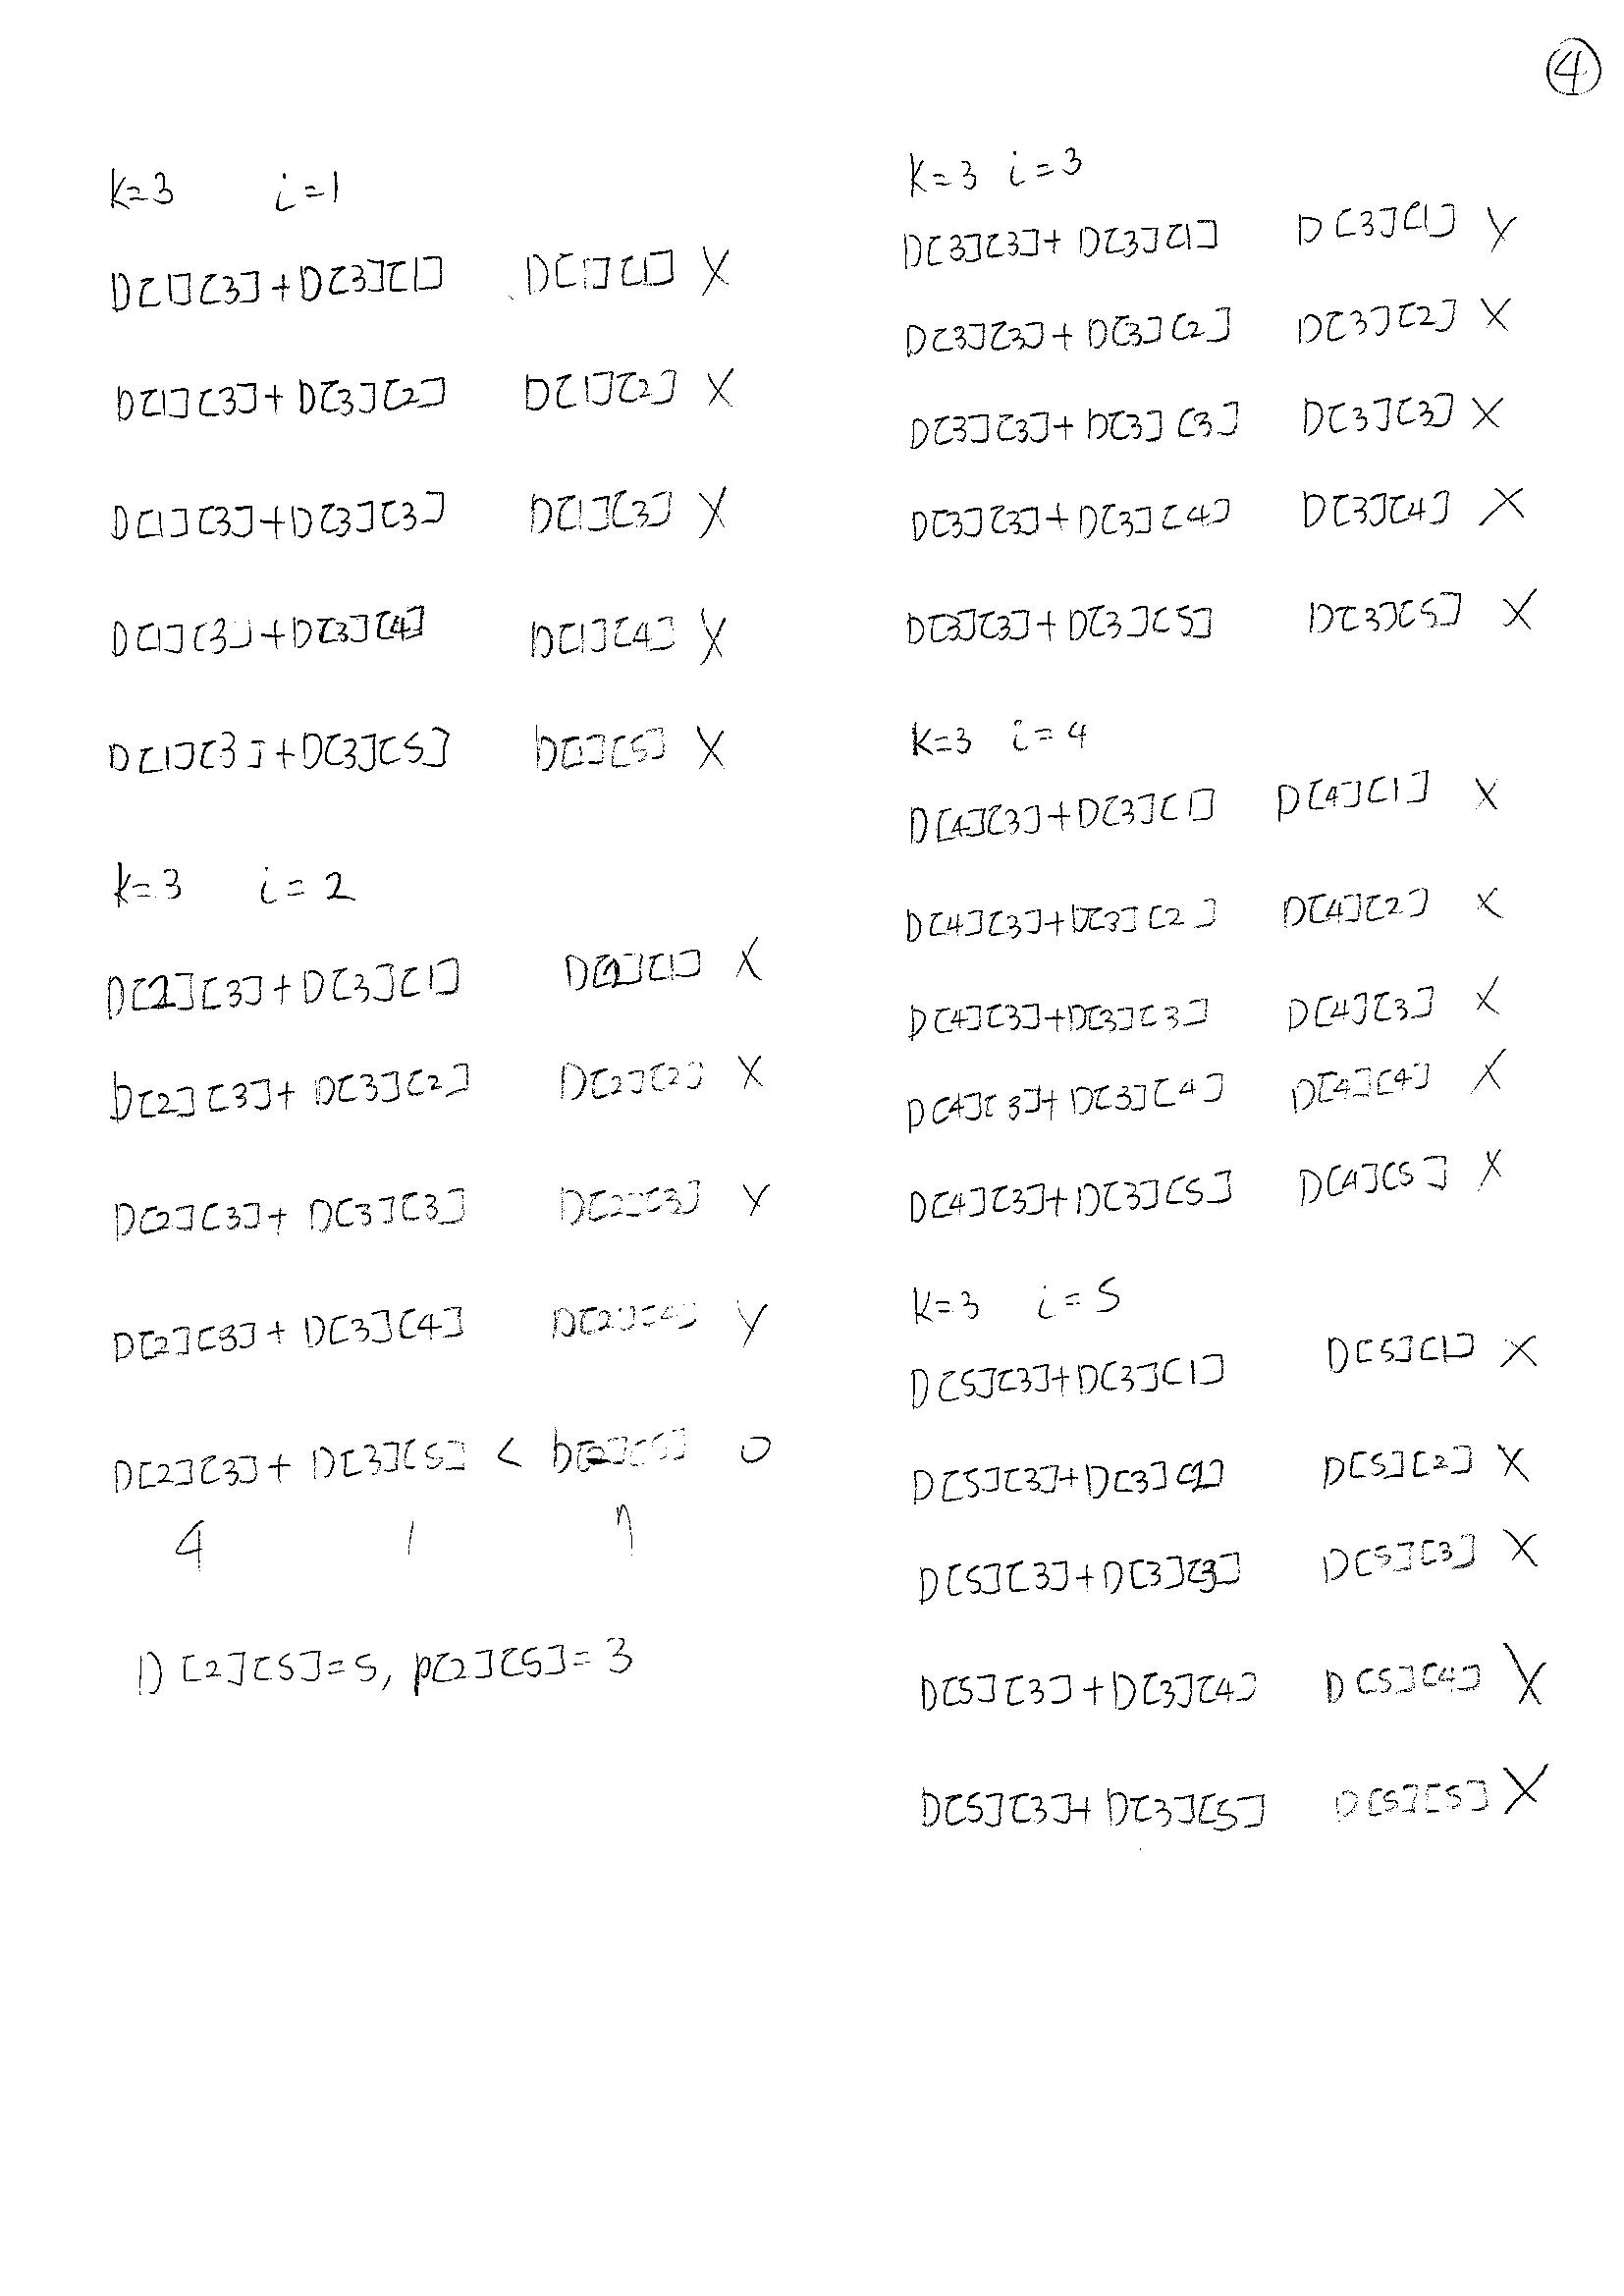 ④
k=3 i=1
D[1][3]+D[3][1] D[1][1] X
D[1][3]+D[3][2] D[1][2] X
D[1][3]+D[3][3] D[1][3] X
D[1][3]+D[3][4] D[1][4] X
D[1][3]+D[3][5] D[1][5] X
k=3 i=2
D[2][3]+D[3][1] D[2][1] X
D[2][3]+D[3][2] D[2][2] X
D[2][3]+D[3][3] D[2][3] X
D[2][3]+D[3][4] D[2][4] X
D[2][3]+D[3][5] < D[2][5] O
4 1 7
D[2][5]=5, P[2][5]=3
k=3 i=3
D[3][3]+D[3][1] D[3][1] X
D[3][3]+D[3][2] D[3][2] X
D[3][3]+D[3][3] D[3][3] X
D[3][3]+D[3][4] D[3][4] X
D[3][3]+D[3][5] D[3][5] X
k=3 i=4
D[4][3]+D[3][1] D[4][1] X
D[4][3]+D[3][2] D[4][2] X
D[4][3]+D[3][3] D[4][3] X
D[4][3]+D[3][4] D[4][4] X
D[4][3]+D[3][5] D[4][5] X
k=3 i=5
D[5][3]+D[3][1] D[5][1] X
D[5][3]+D[3][2] D[5][2] X
D[5][3]+D[3][3] D[5][3] X
D[5][3]+D[3][4] D[5][4] X
D[5][3]+D[3][5] D[5][5] X